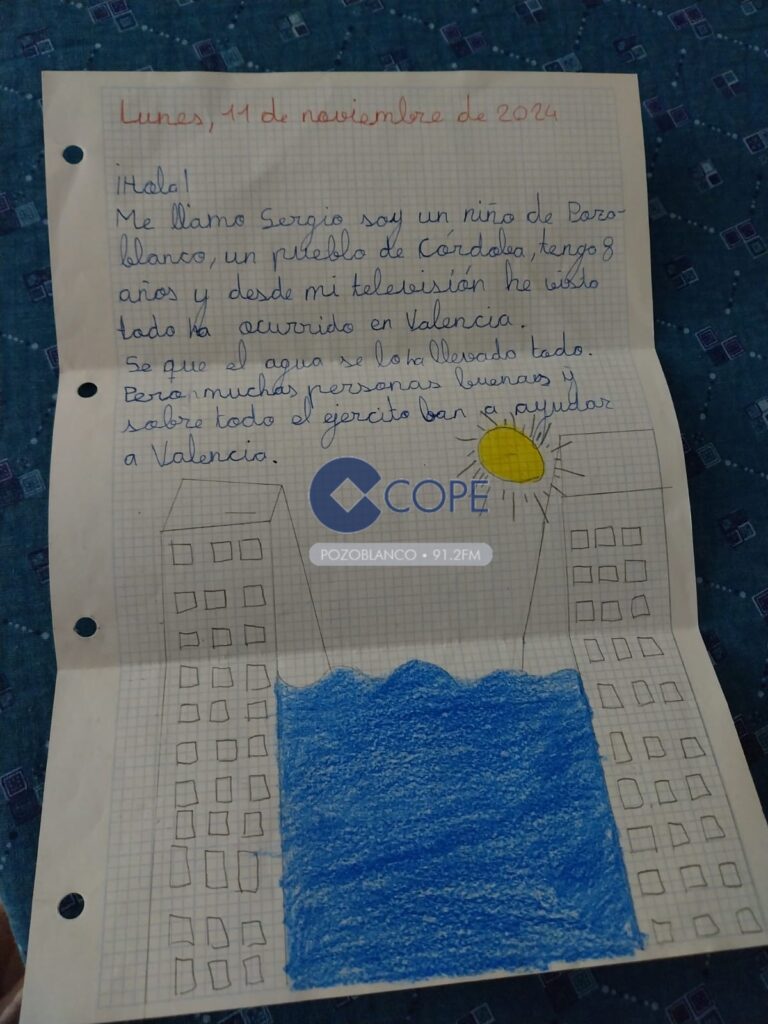 Lunes, 11 de noviembre de 2024
¡Hola!
Me llamo Sergio soy un niño de Pozo-
blanco, un pueblo de Córdoba, tengo 8
años y desde mi televisión he visto
todo ha ocurrido en Valencia.
Se que el agua se lo ha llevado todo.
Pero muchas personas buenas y
sobre todo el ejercito ban a ayudar
a Valencia.
COPE
POZOBLANCO • 91.2FM